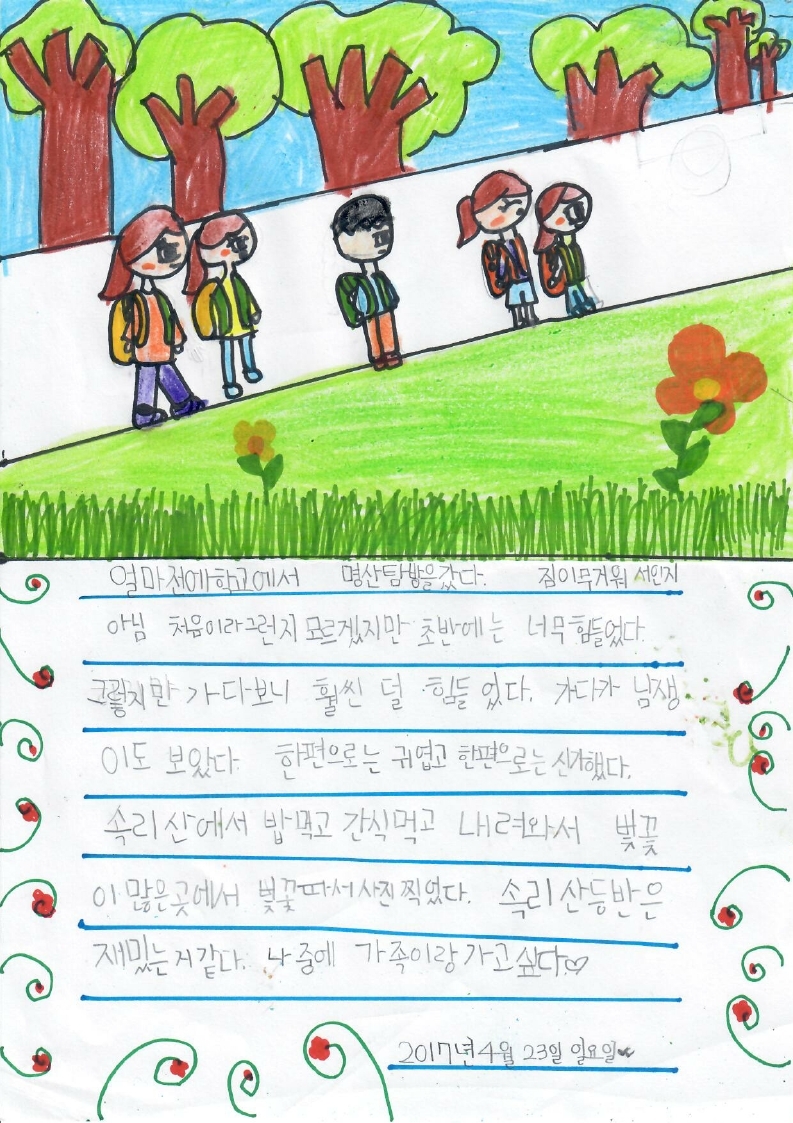 얼마전에 학교에서 명산탐방을 갔다. 짐이 무거워서인지
아님 처음이라 그런지 모르겠지만 초반에는 너무 힘들었다.
그렇지만 가다보니 훨씬 덜 힘들었다. 가다가 남생
이도 보았다. 한편으로는 귀엽고 한편으로는 신기했다.
속리산에서 밥먹고 간식먹고 내려와서 벚꽃
이 많은곳에서 벚꽃따서 사진 찍었다. 속리산등반은
재밌는거 같다. 나중에 가족이랑 가고싶다♡
2017년 4월 23일 일요일